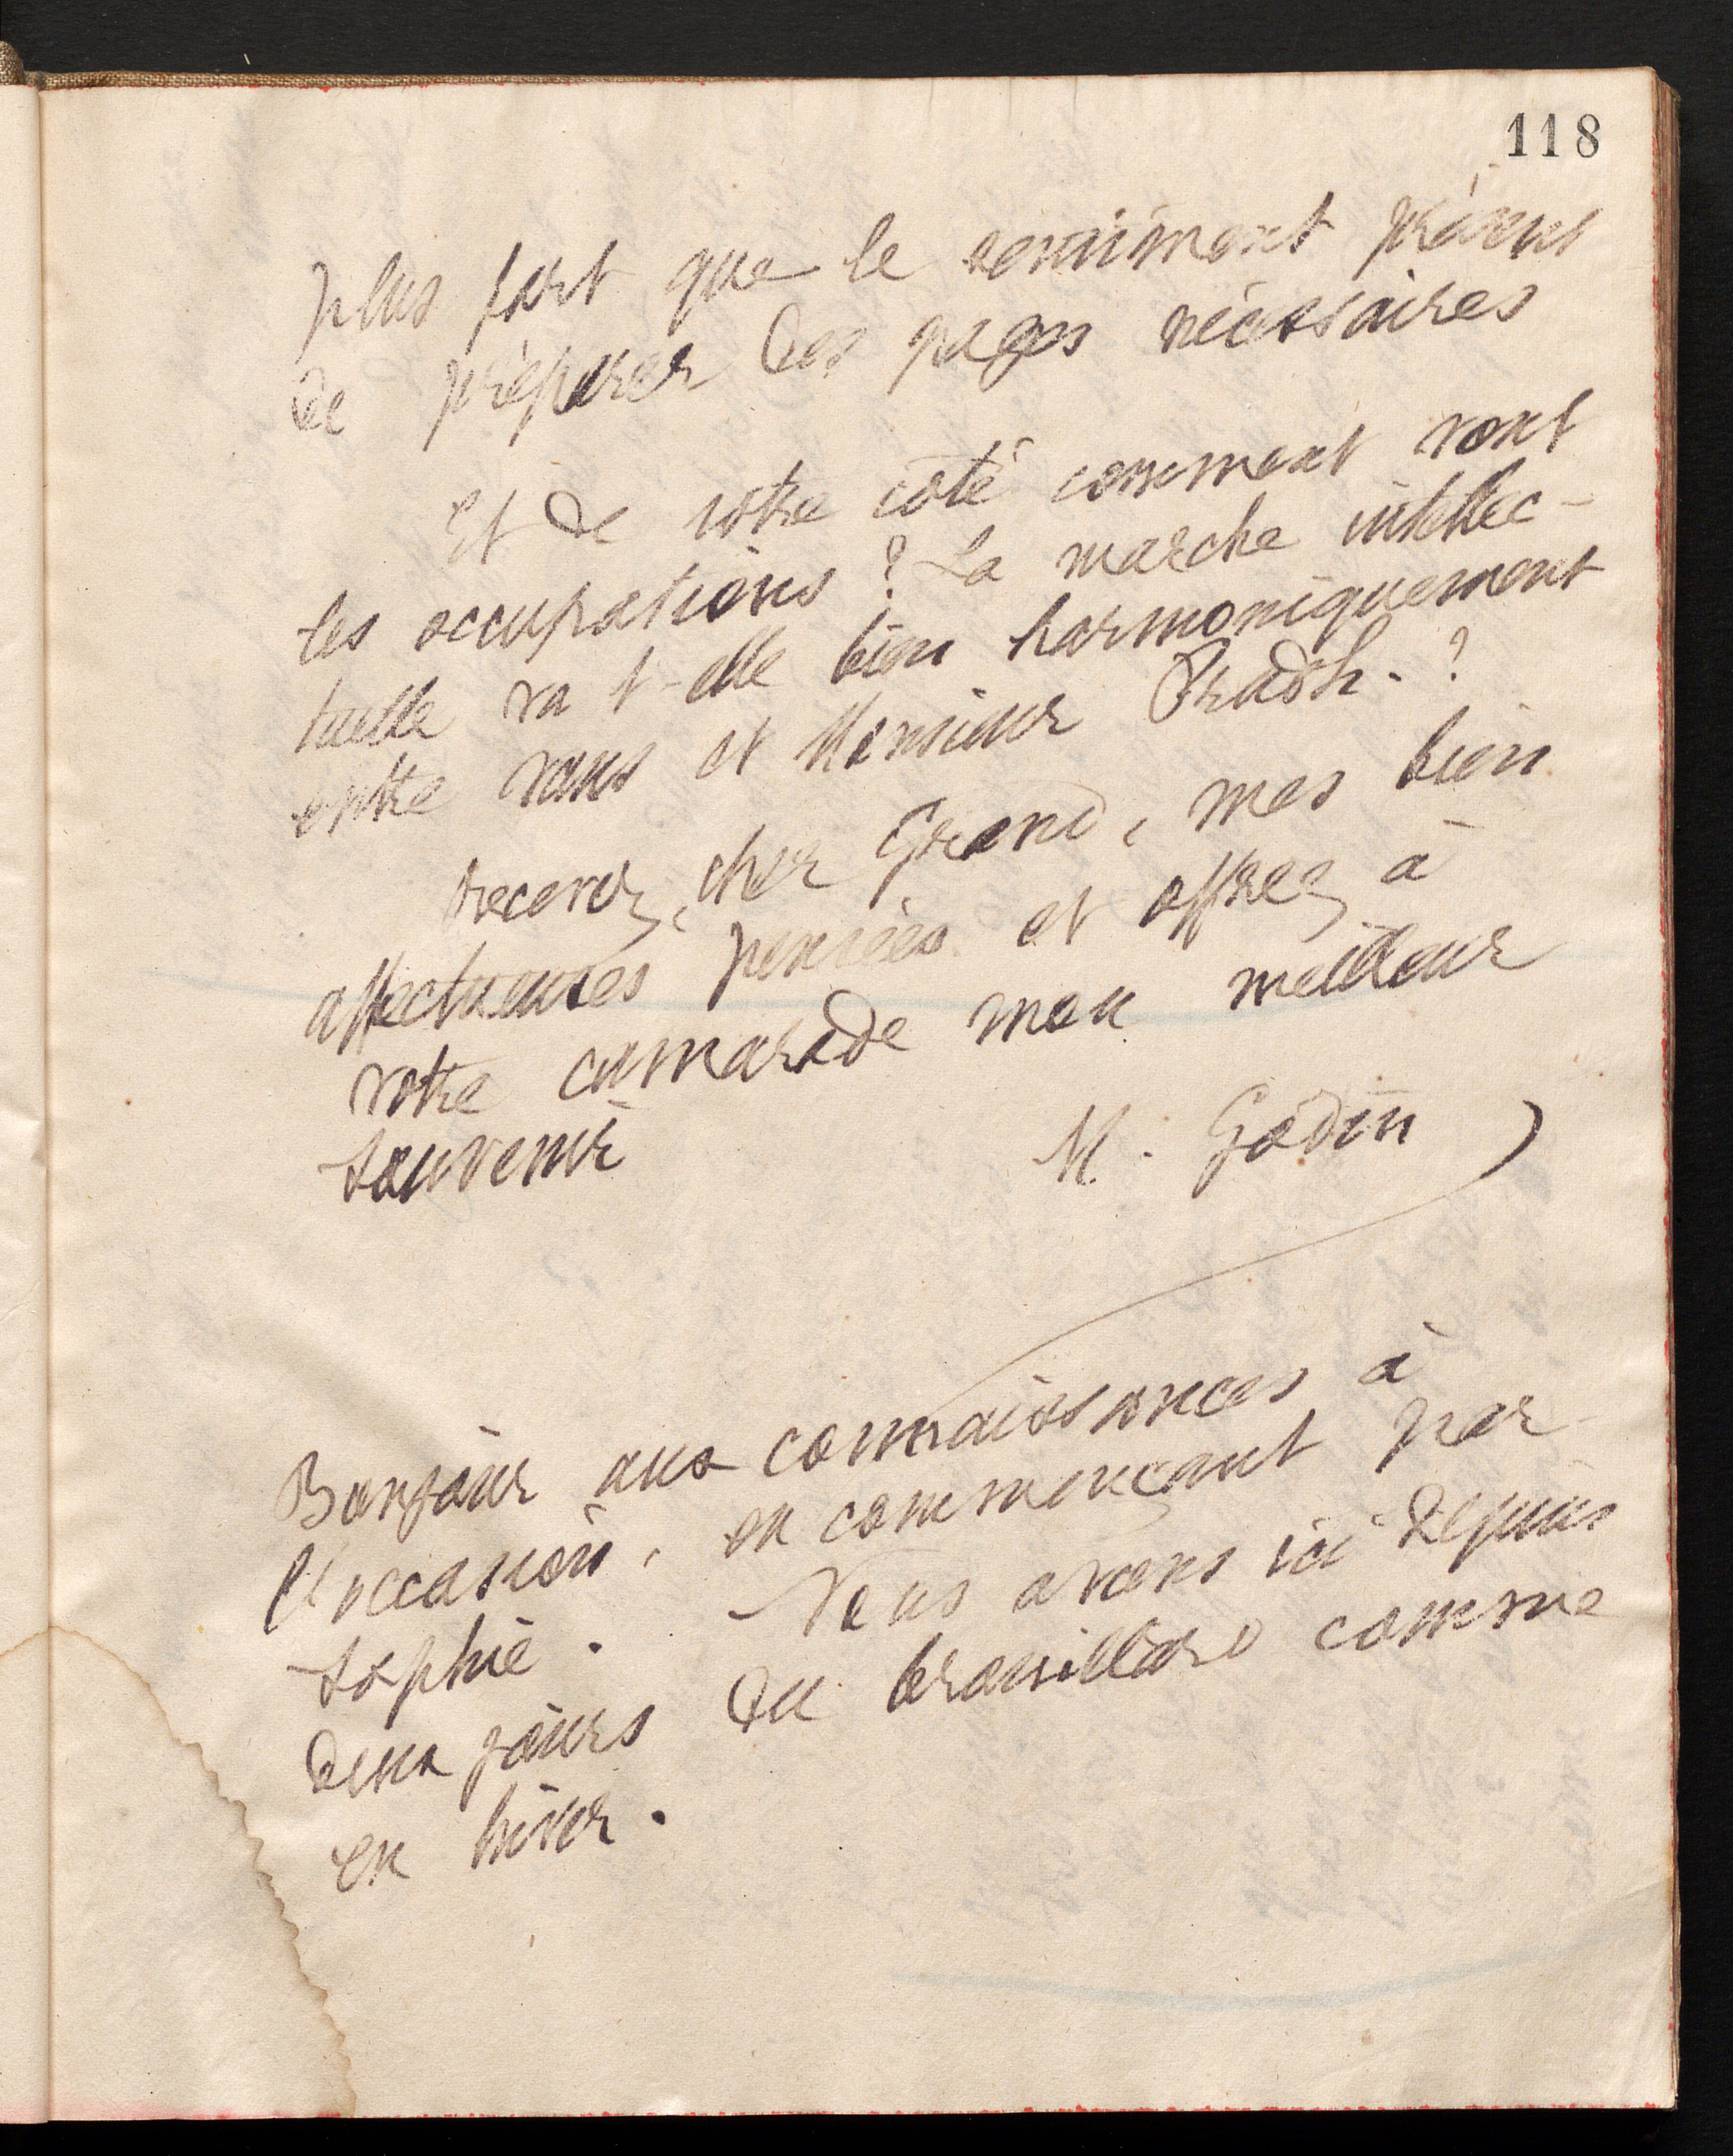 118
plus fort que le sentiment
de préparer les pages nécessaires
Et de votre côté comment vont
les occupations ? La marche intellec-
tuelle va t-elle bien harmoniquement
entre vous et Monsieur Pradh. ?
Recevez, cher Grand, mes bien
affectueuses pensées et offrez à
votre camarade mon meilleur
souvenir
M. Godin
Bonjour aux connaissances à
l'occasion, en commençant par
Sophie. Nous avons ici depuis
deux jours du brouillard comme
en hiver.